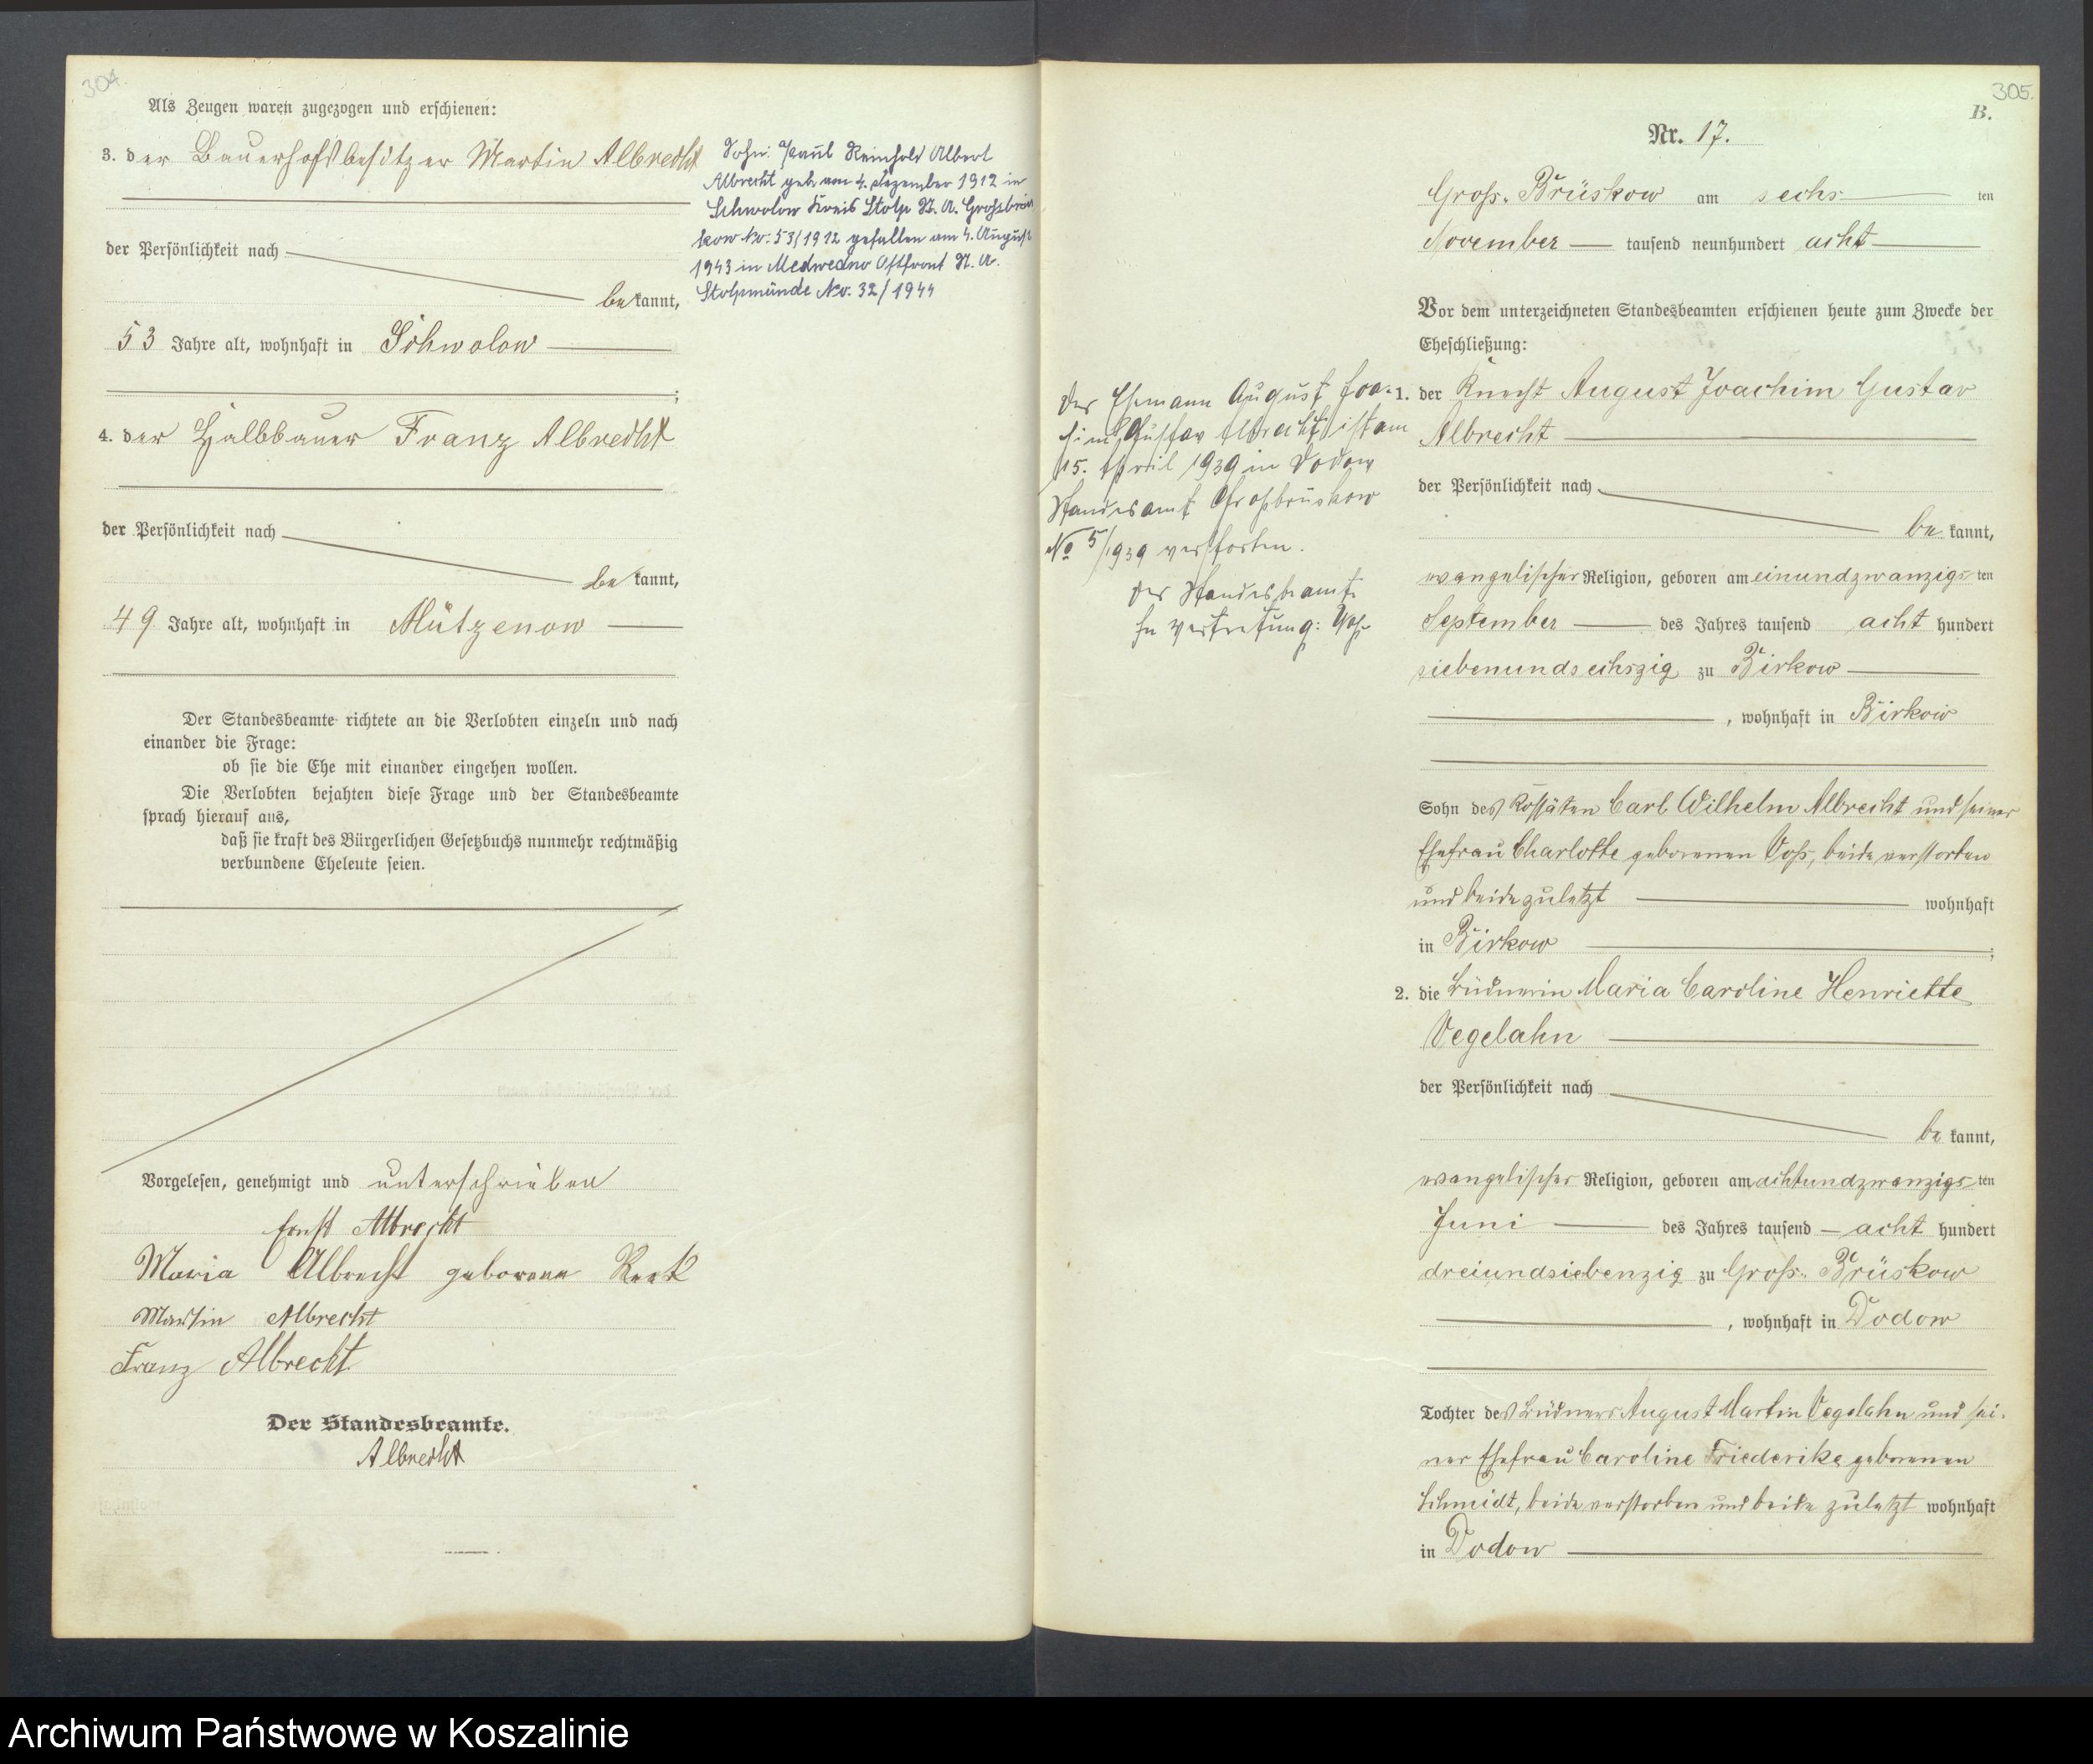 304.
Als Zeugen waren zugezogen und erschienen:
3. der Bauerhofsbesitzer Martin Albrecht
der Persönlichkeit nach
bekannt,
53 Jahre alt, wohnhaft in Schwolow
;
4. der Halbbauer Franz Albrecht
der Persönlichkeit nach
bekannt,
49 Jahre alt, wohnhaft in Mützenow
Der Standesbeamte richtete an die Verlobten einzeln und nach
einander die Frage:
ob sie die Ehe mit einander eingehen wollen.
Die Verlobten bejahten diese Frage und der Standesbeamte
sprach hierauf aus,
daß sie kraft des Bürgerlichen Gesetzbuchs nunmehr rechtmäßig
verbundene Eheleute seien.
Vorgelesen, genehmigt und unterschrieben
Ernst Albrecht
Maria Albrecht geborene Reek
Martin Albrecht
Franz Albrecht
Der Standesbeamte.
Albrecht
Sohn: Paul Reinhold Albert
Albrecht geb. am 4. Dezember 1912 in
Schwolow Kreis Stolp St. A. Großbrüs
kow Nr. 53/1912 gefallen am 4. August
1943 in Medwedno Ostfront St. A.
Stolpmünde No. 32/1944
305.
B.
Nr. 17.
Groß-Brüskow am sechs ten
November tausend neunhundert acht
Vor dem unterzeichneten Standesbeamten erschienen heute zum Zwecke der
Eheschließung:
1. der Knecht August Joachim Gustav
Albrecht
der Persönlichkeit nach
bekannt,
evangelischer Religion, geboren am einundzwanzigsten
September des Jahres tausend acht hundert
siebenundsechszig zu Birkow
, wohnhaft in Birkow
Sohn des Kossäten Carl Wilhelm Albrecht und seiner
Ehefrau Charlotte geborenen Voß, beide verstorben
und beide zuletzt wohnhaft
in Birkow ;
2. die Büdnerin Maria Caroline Henriette
Vegelahn
der Persönlichkeit nach
bekannt,
evangelischer Religion, geboren am achtundzwanzigsten
Juni des Jahres tausend acht hundert
dreiundsiebenzig zu Groß-Brüskow
, wohnhaft in Dodow
Tochter des Büdners August Martin Vegelahn und sei-
ner Ehefrau Caroline Friederike geborenen
Schmidt, beide verstorben und beide zuletzt wohnhaft
in Dodow
Der Ehemann August Joa-
chim Gustav Albrecht ist am
15. April 1939 in Dodow
Standesamt Großbrüskow
No 5/1939 verstorben.
Der Standesbeamte
In Vertretung:
Archiwum Państwowe w Koszalinie